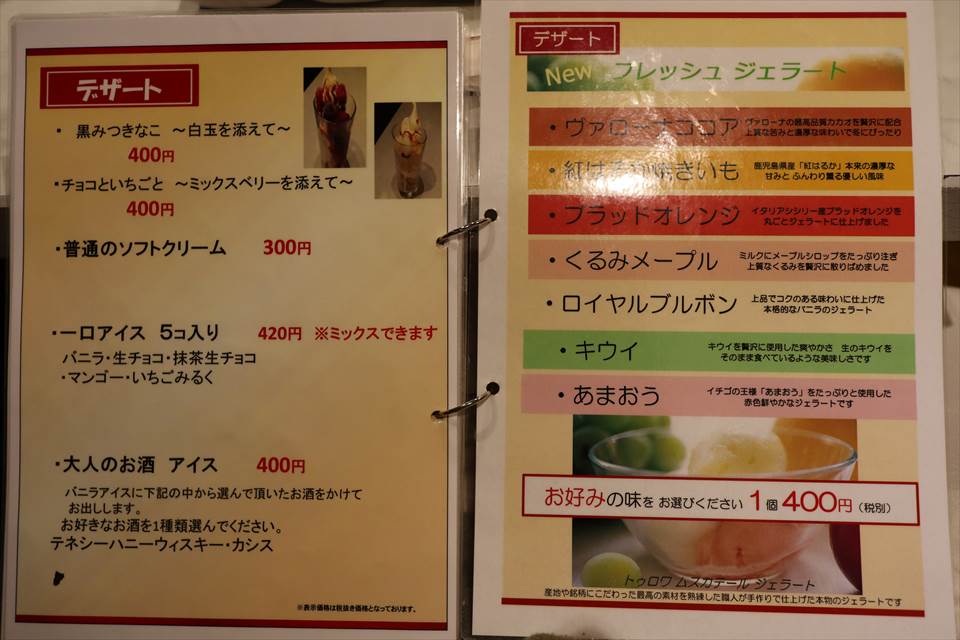 デザート
・ 黒みつきなこ ～白玉を添えて～
400円
・チョコといちごと ～ミックスベリーを添えて～
400円
・普通のソフトクリーム 300円
・一口アイス 5コ入り 420円 ※ミックスできます
バニラ・生チョコ・抹茶生チョコ
・マンゴー・いちごみるく
・大人のお酒 アイス 400円
バニラアイスに下記の中から選んで頂いたお酒をかけて
お出しします。
お好きなお酒を1種類選んでください。
テネシーハニーウィスキー・カシス
※表示価格は税抜き価格となっております。
デザート
New フレッシュ ジェラート
・ヴァローナココア ヴァローナの最高品質カカオを贅沢に配合
上質な苦みと濃厚な味わいで冬にぴったり
・紅はるか焼きいも 鹿児島県産「紅はるか」本来の濃厚な
甘みと ふんわり薫る優しい風味
・ブラッドオレンジ イタリアシシリー産ブラッドオレンジを
丸ごとジェラートに仕上げました
・くるみメープル ミルクにメープルシロップをたっぷり注ぎ
上質なくるみを贅沢に散りばめました
・ロイヤルブルボン 上品でコクのある味わいに仕上げた
本格的なバニラのジェラート
・キウイ キウイを贅沢に使用した爽やかさ 生のキウイを
そのまま食べているような美味しさです
・あまおう イチゴの王様「あまおう」をたっぷりと使用した
赤色鮮やかなジェラートです
お好みの味を お選びください 1個 400円（税別）
トゥロワ ムスカテール ジェラート
産地や銘柄にこだわった最高の素材を熟練した職人が手作りで仕上げた本物のジェラートです